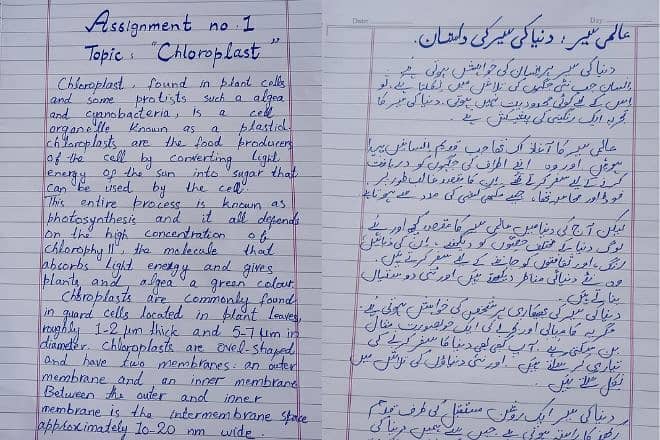 Assignment no. 1
Topic: "Chloroplast"
Chloroplast, found in plant cells
and some protists such a algea
and cyanobacteria, is a cell
organelle known as a plastid.
chloroplasts are the food producers
of the cell by converting light
energy of the sun into sugar that
can be used by the cell.
This entire process is known as
photosynthesis and it all depends
on the high concentration of
chlorophyll, the molecule that
absorbs light energy and gives
plants and algea a green colour.
Chloroplasts are commonly found
in guard cells located in plant leaves,
roughly 1-2 µm thick and 5-7 µm in
diameter. chloroplasts are ovel-shaped
and have two membranes: an outer
membrane and an inner membrane
Between the outer and inner
membrane is the intermembrane space
approximately 10-20 nm wide.
Date:
Day
عالمی سیر: دنیا کی سیر کی داستان۔
دنیا کی سیر ہر انسان کی خواہش ہوتی ہے۔
انسان جب نئی جگہوں کی تلاش میں نکلتا ہے، تو
اس کے لئے کوئی محدودیت نہیں ہوتی۔ دنیا کی سیر کا
تجربہ ایک
عالمی سیر کا آغاز تب ہوا جب قدیم انسان پیدا
ہوئے اور وہ اپنے اطراف کی جگہوں کو دریافت
کرنے کے لیے سفر کرتے تھے۔ ان کا مقصد
لیکن آج کی دنیا میں عالمی سیر کا مقصد کچھ اور ہے
لوگ دنیا کے مختلف حصوں کو دیکھنے، ان کی
اور ثقافتوں کو جاننے کے لیے سفر کرتے ہیں۔
وہ نئے دنیائی مناظر دیکھتے ہیں اور نئی دوستیاں
بناتے ہیں۔
دنیا کی سیر کی ہر شخص کی خواہش ہوتی ہے۔
کامیابی اور تجربے کی ایک خوبصورت مثال
بن سکتی ہے۔ آپ کبھی بھی دنیا کا سفر کرنے کی
تیاری کر سکتے ہیں اور نئی دنیاؤں کی تلاش میں
نکل سکتے ہیں۔
دنیا کی سیر ایک روشن مستقبل کی طرف قدم